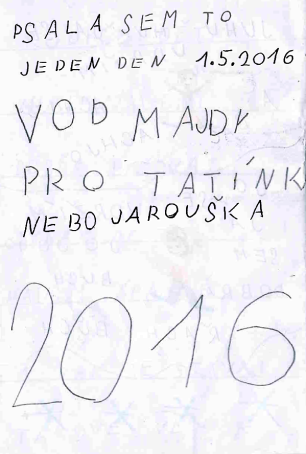 PSALA SEM TO
JEDEN DEN 1.5.2016
VOD MAJDY
PRO TATÍNK
NEBO JAROUŠKA
2016